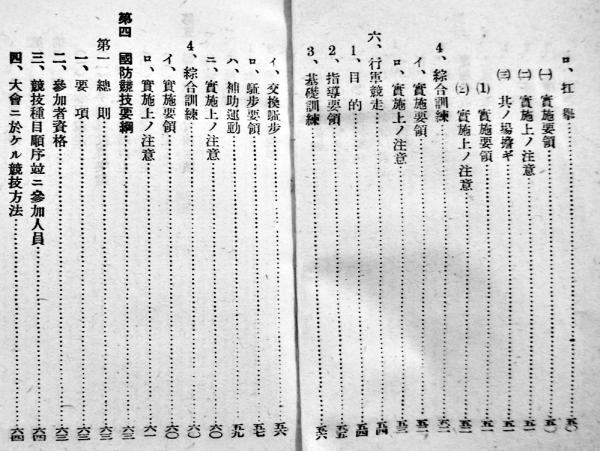 ロ、扛擧……五〇
㈠ 實施要領……五〇
㈡ 實施上ノ注意……五一
㈢ 其ノ場擔ギ……五一
⑴ 實施要領……五一
⑵ 實施上ノ注意……五二
4、綜合訓練……五二
イ、實施要領……五二
ロ、實施上ノ注意……五三
六、行軍競走……五四
1、目的……五四
2、指導要領……五五
3、基礎訓練……五六
イ、交換驅步……五六
ロ、驅步要領……五七
ハ、補助運動……五九
ニ、實施上ノ注意……六〇
4、綜合訓練……六〇
イ、實施要領……六〇
ロ、實施上ノ注意……六一
第四 國防競技要綱……六三
第一 總則……六三
一、要項……六三
二、參加者資格……六三
三、競技種目順序竝ニ參加人員……六四
四、大會ニ於ケル競技方法……六四